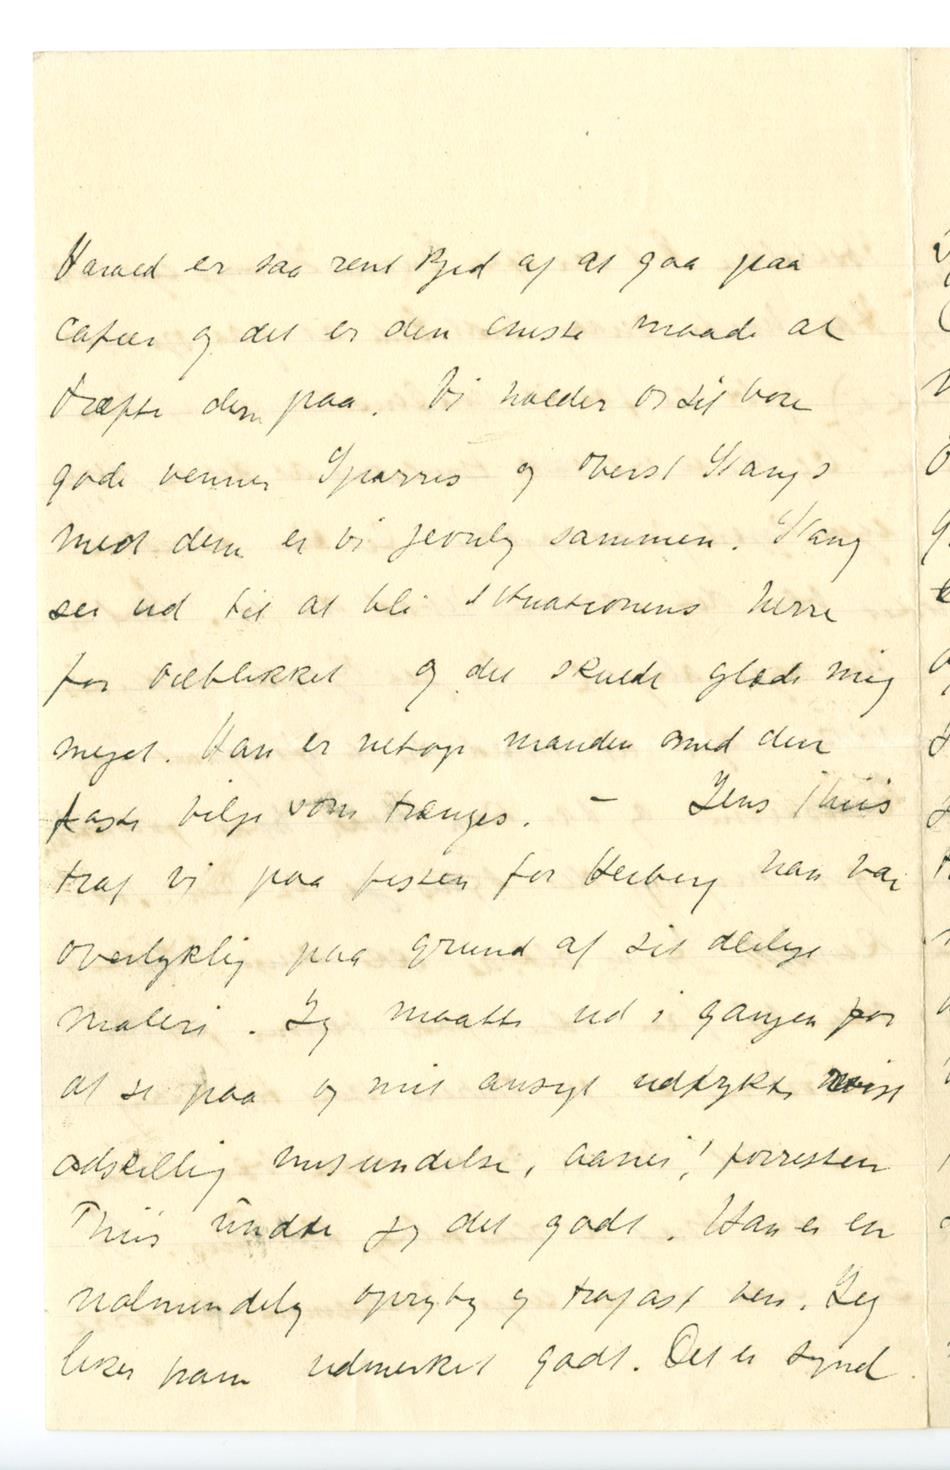 Harald er saa rent kjed af at gaa paa
cafeer og det er den eneste maade at
træffe dem paa. Vi holder os til vore
gode venner Sparres og oberst Stangs
med dem er vi jevnlig sammen. Stang
ser ud til at bli situationens herre
for øieblikket og det skulde glæde mig
meget. Han er netop manden med den
faste vilje som trænges. – Jens Thiis
traf vi paa festen for Heiberg han var
overlykkelig paa grund af sit deilige
maleri. Jeg maatte ud i gangen for
at se paa og mit ansigt udtrykte vist
adskillig misundelse, aanei! forresten
Thiis undte jeg det godt. Han er en
ualmindelig oprigtig og trofast ven. Jeg
liker ham udmerket godt. Det er synd